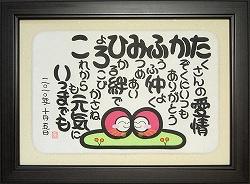 たくさんの愛情
かぞくにいつも
ありがとう
ふうふ仲よく
みつめあい
ひかる絆で
よろこびかさね
これからも元気に
いつまでも
二〇一〇年十月五日